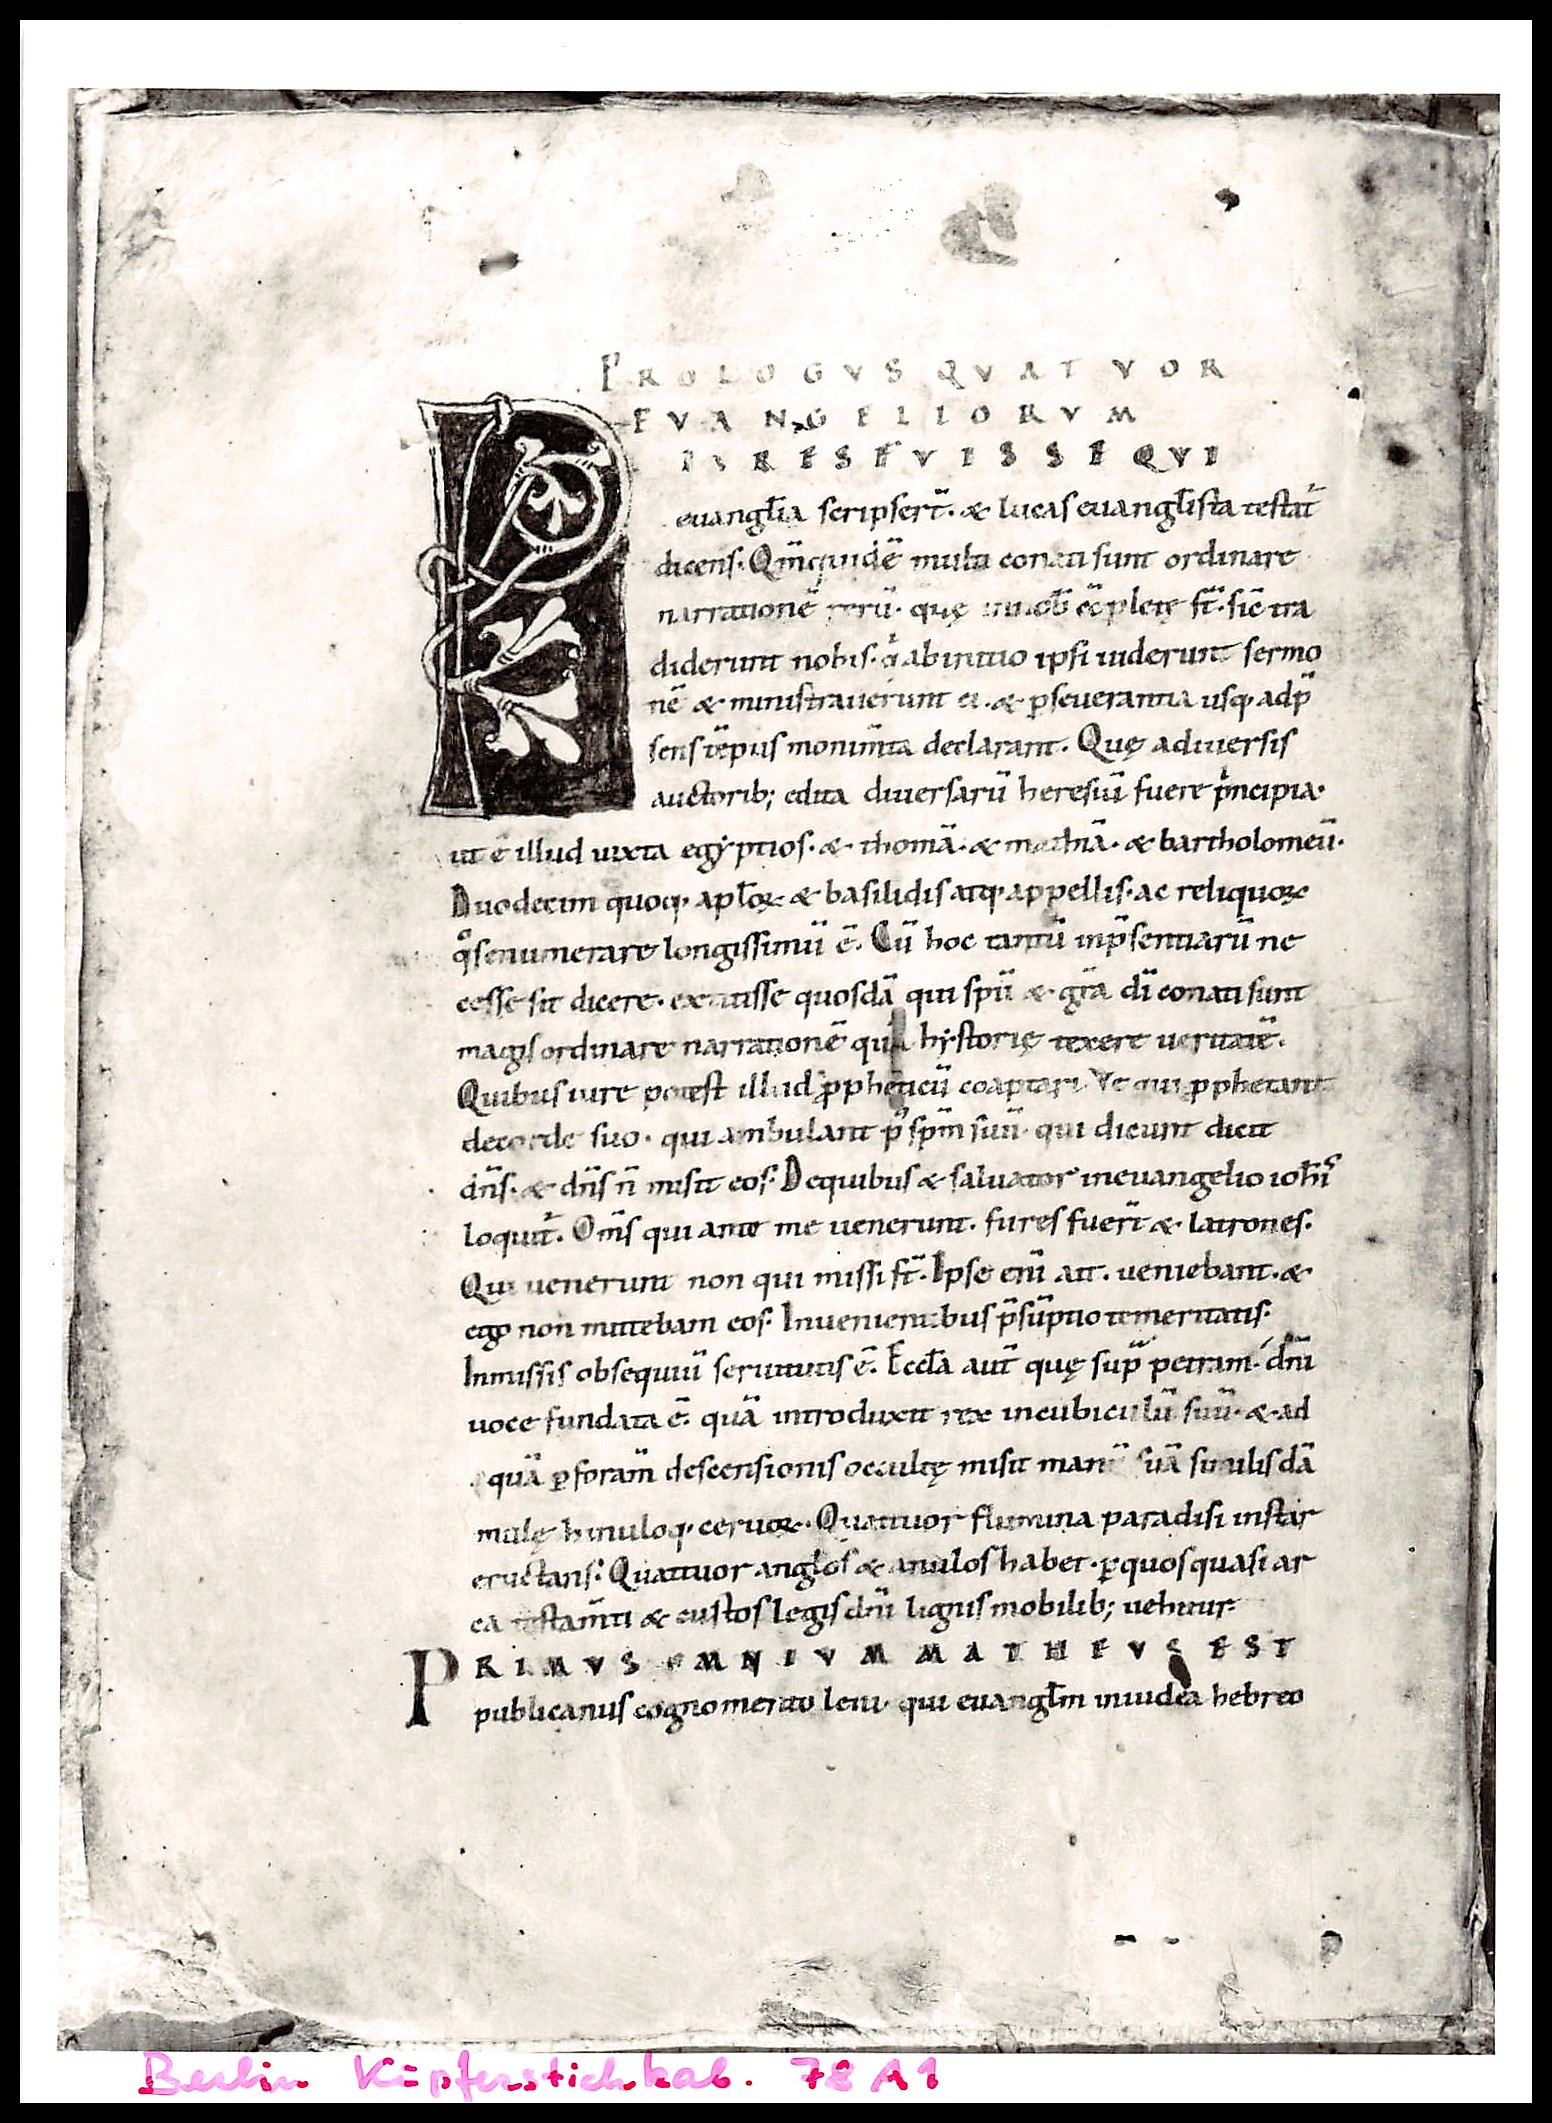 PROLOGVS QVATVOR
EVANGELIORVM
PLVRES FVISSE QVI
euangl̄ia scripser̄t. & lucas euangl̄ista testat᷑
dicens. Qm̄quidē multi conati sunt ordinare
narrationē rerū. quę innob̄ cōpletę st̄. sic̄ tra
diderunt nobis. qͥ abinitio ipsi uiderunt sermo
nē & ministrauerunt ei. & ꝑseuerantia usq; adp̄
sens tēpus monim̄ta declarant. Quę adiuersis
auctorib; edita diuersarū heresiū fuere pͥncipia.
ut ē illud iuxta egẏptios. & thomā. & mathiā. & bartholomeū.
Duodecim quoq; apl̄oꝝ & basilidis atq; appellis. ac reliquoꝝ
qͦs enumerare longissimū ē. Cū hoc tantū inp̄sentiarū ne
cesse sit dicere. extitisse quosdā qui spū & gr̄a dī conati sunt
magis ordinare narrationē quā hẏstorię texere ueritatē.
Quibus iure potest illud ꝓpheticū coaptari Ve qui ꝓphetant
decorde suo. qui ambulant pᷤ spm̄ suū. qui dicunt dicit
dn̄s. & dn̄s n̄ misit eos. Dequibus & saluator ineuangelio ioh̄is
loquit᷑. Om̄s qui ante me uenerunt. fures fuer̄t & latrones.
Qui uenerunt non qui missi st̄. Ipse eni̅ ait. ueniebant. &
ego non mittebam eos. Inuenientibus p̄sūptio temeritatis.
Inmissis obsequiū seruitutis ē. Eccl̄a aut̄ quę supͣ petram. dn̄i
uoce fundata ē. quā introduxit rex incubiculū suū. & ad
quā ꝑ foram̄ descensionis occultę misit manū suā similis dā
mulę hinuloq; ceruoꝝ. Quattuor flumina paradisi instar
eructans. Quattuor anglos & anulos habet. ꝑquos quasi ar
ca testam̄ti & custos legis dn̄i lignis mobilib; uehitur.
PRIMVS OMNIVM MATHEVS EST
publicanus cognomento leui. qui euangl̄m iniudea hebreo
Berlin Kupferstichkab. 78 A 1